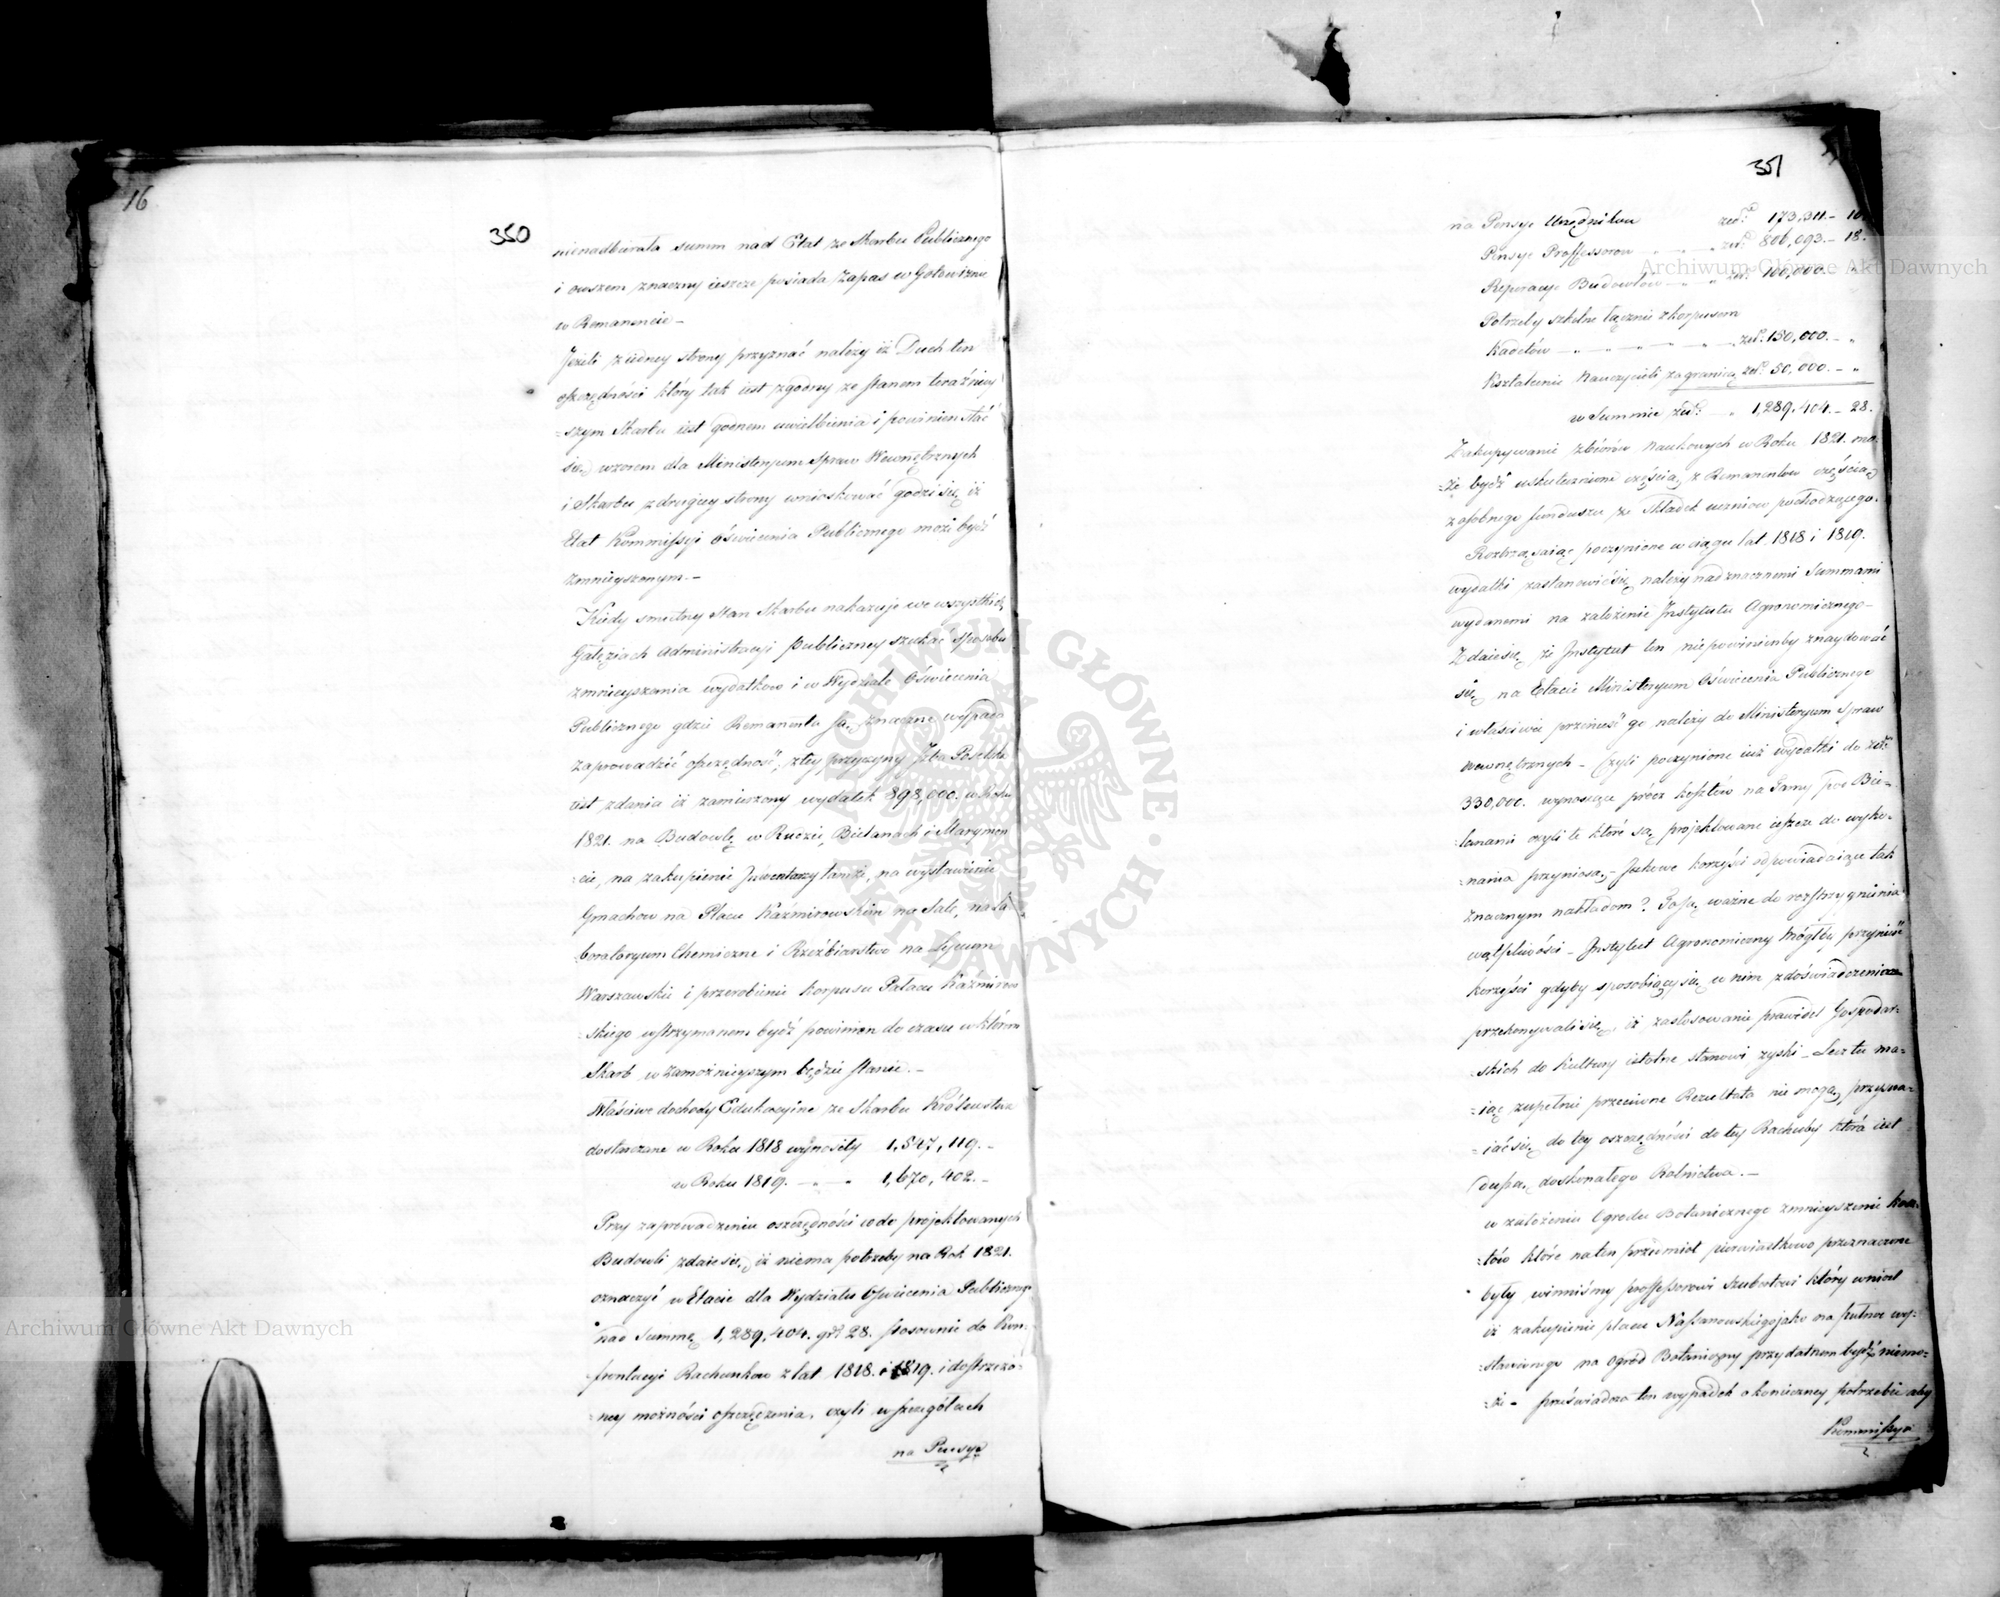 16
350
nienadbierała summ nad Etat ze Skarbu Publicznego
i owszem znaczny ieszcze posiada Zapas w Gotowiznie
w Remanencie –
Jeżeli z iedney strony przyznać należy iż Duch ten
oszczędności który tak iest zgodny ze stanem teraźniey
=szym Skarbu iest godnem uwielbienia i powinien stać
się wzorem dla Ministeryum Spraw Wewnętrznych
i Skarbu z drugiey strony wnioskować godzi się iż
Etat Kommissyi Oświecenia Publicznego może bydź
zmnieyszonym. –
Kiedy smutny Stan Skarbu nakazuje we wszystkich
Gałęziach Administracyi Publiczney szukać sposobu
zmnieyszania wydatkow i w Wydziale Oświecenia
Publicznego gdzie Remanenta są znaczne wypada
zaprowadzić oszczędność, z tey przyczyny Izba Poselska
iest zdania iż zamierzony wydatek 898,000. w Roku
1821. na Budowlę w Rudzie, Bielanach i Marymon
=cie, na zakupienie Inwentarzy tamże, na wystawienie
Gmachow na Placu Kaźmirowskim na Sale, na La
boratoryum Chemiczne i Rzeźbiarstwo na Lyceum
Warszawskie i przerobienie Korpusu Pałacu Kaźmirow
=skiego wstrzymanem bydź powinien do czasu w którem
Skarb w zamożnieyszym będzie stanie. –
Właściwe dochody Edukacyine ze Skarbu Królestwa
dostarczane w Roku 1818 wynosiły 1,547,119. –
w Roku 1819. – „ – „ 1,670,402. –
Przy zaprowadzeniu oszczędności co do projektowanych
Budowli zdaie się iż niema potrzeby na Rok 1821.
oznaczyć w Etacie dla Wydziału Oświecenia Publiczneg
nad Summę 1,289,404. gr. 28. stosownie do Kon=
frontacyi Rachunkow z lat 1818. i 1819. i dostrzeżo=
=ney możności oszczędzenia, czyli w szczegółach
na Pensye
351
na Pensye Urzędnikow złd. 173,311. – 10.
Pensye Proffessorow „ – „ – „ złd. 806,093. – 18.
Reperacye Budowlow – „ – „ złd. 100,000. – „
Potrzeby szkolne łącznie z korpusem
Kadetów – „ – „ – „ – „ złd. 150,000. – „
Kształcenie Nauczycieli za granicą złd. 50,000. – „
w Summie złd. – „ 1,289,404. – 28.
Zakupywanie Zbiorów Naukowych w Roku 1821. mo=
=że bydź uskutecznione częścią z Remanentow częścią
z osobnego funduszu ze Składek uczniow pochodzącego.
Roztrząsaiąc poczynione w ciągu lat 1818 i 1819.
wydatki zastanowić się należy nad znacznemi Summami
wydanemi na założenie Instytutu Agronomicznego –
Zdaie się że Instytut ten niepowinienby znaydować
się na Etacie Ministeryum Oświecenia Publicznego
i właściwie przenieść go należy do Ministeryum Spraw
Wewnętrznych – Czyli poczynione iuż wydatki do złd.
330,000. wynoszące procz kosztów na Tamy pod Bie=
=lanami czyli te które są projektowane ieszcze do wyko=
=nania przyniosą – Jakowe korzyści odpowiadaiące tak
znacznym nakładom? To są ważne do rozstrzygnienia
wątpliwości – Instytut Agronomiczny mógłby przynieść
korzyści gdyby sposobiący się w nim z doświadczenia
przekonywali się, iż zastosowanie prawideł Gospodar=
=skich do Kultury istotne stanowi zyski – Lecz tu ma=
=iąc zupełnie przeciwne Rezultata nie mogą przyzwa=
=iać się do tey oszczędności do tey Rachuby która iest
duszą doskonałego Rolnictwa. –
w założeniu Ogrodu Botanicznego zmnieyszenie kosz=
=tów które na ten przedmiot pierwiastkowo przeznaczone
były winniśmy professorowi Szubertowi który wniosł
iż zakupienie placu Nassanowskiego jako na
=stawionego na ogród Botaniczny przydatnem bydź niemo=
=że – poświadcza ten wypadek o konieczney potrzebie aby
Kommissya